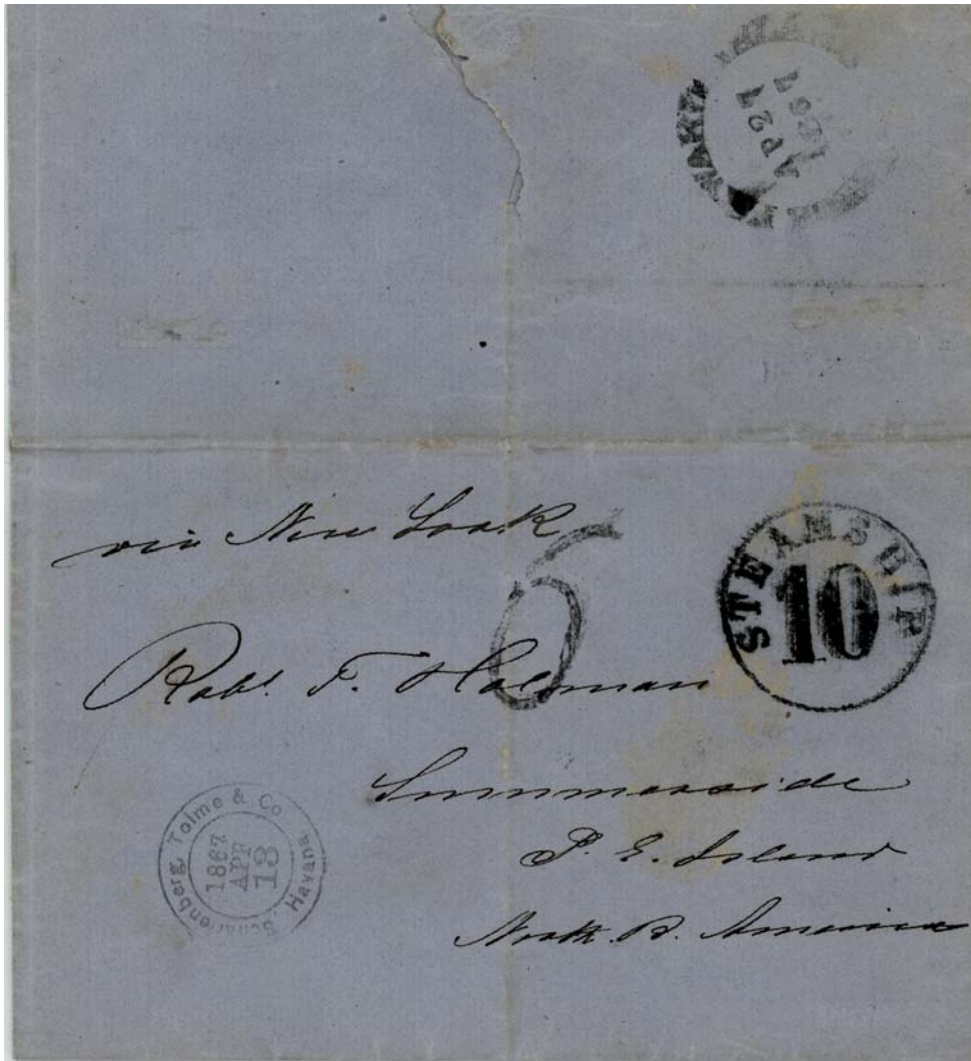 AP 27
1867
via New York
6
STEAMSHIP
10
Robt. F. Holman
Summerside
P. E. Island
North. B. America
Scharfenberg, Tolme & Co
1867
APR
13
Havana